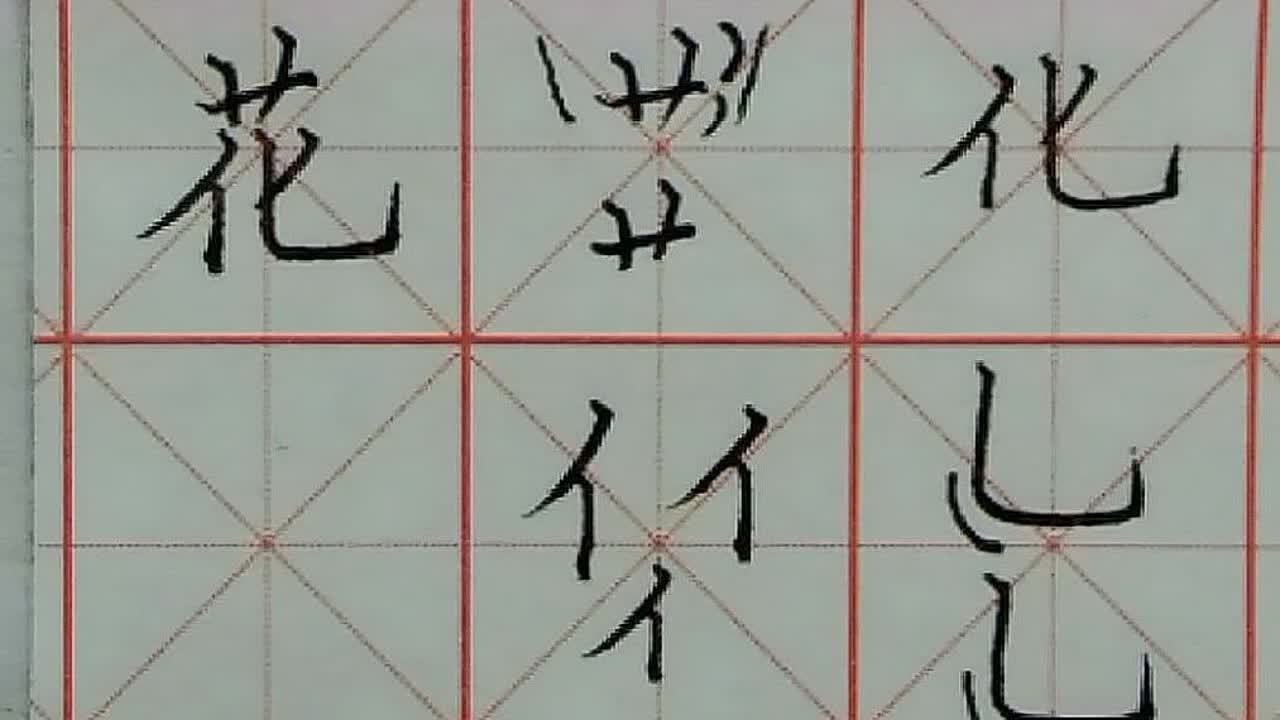 花 艹 化
艹
亻 亻 乚
亻 乚